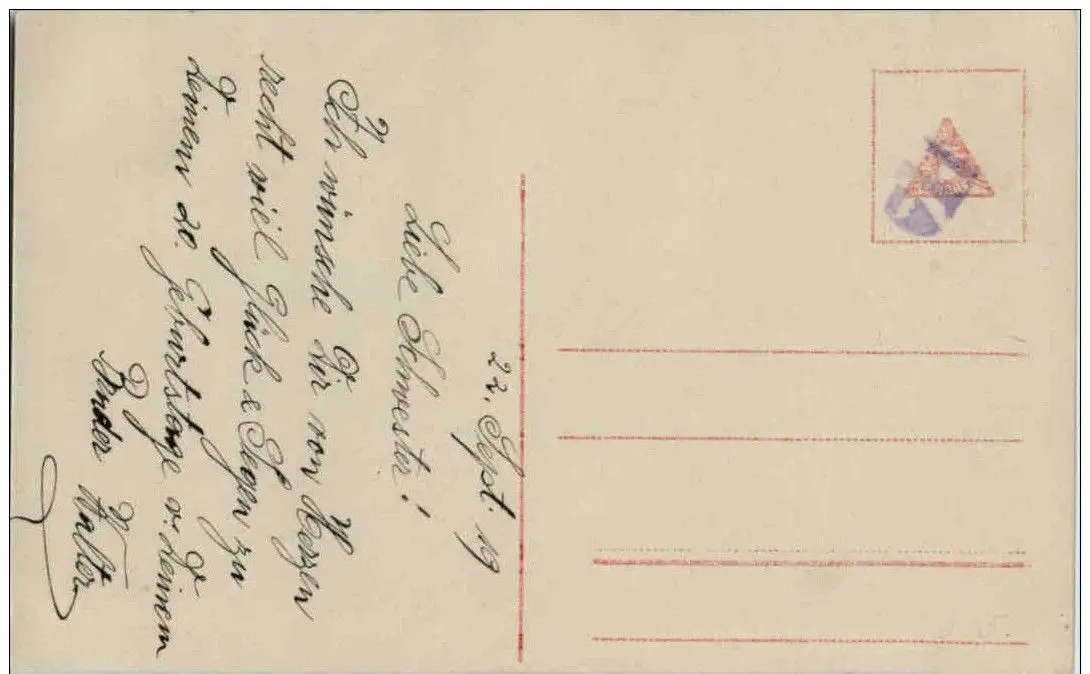 22. Sept. 19
Liebe Schwester!
Ich wünsche Dir von Herzen
recht viel Glück & Segen zu
Deinem 20. Geburtstage v. Deinem
Bruder Walter